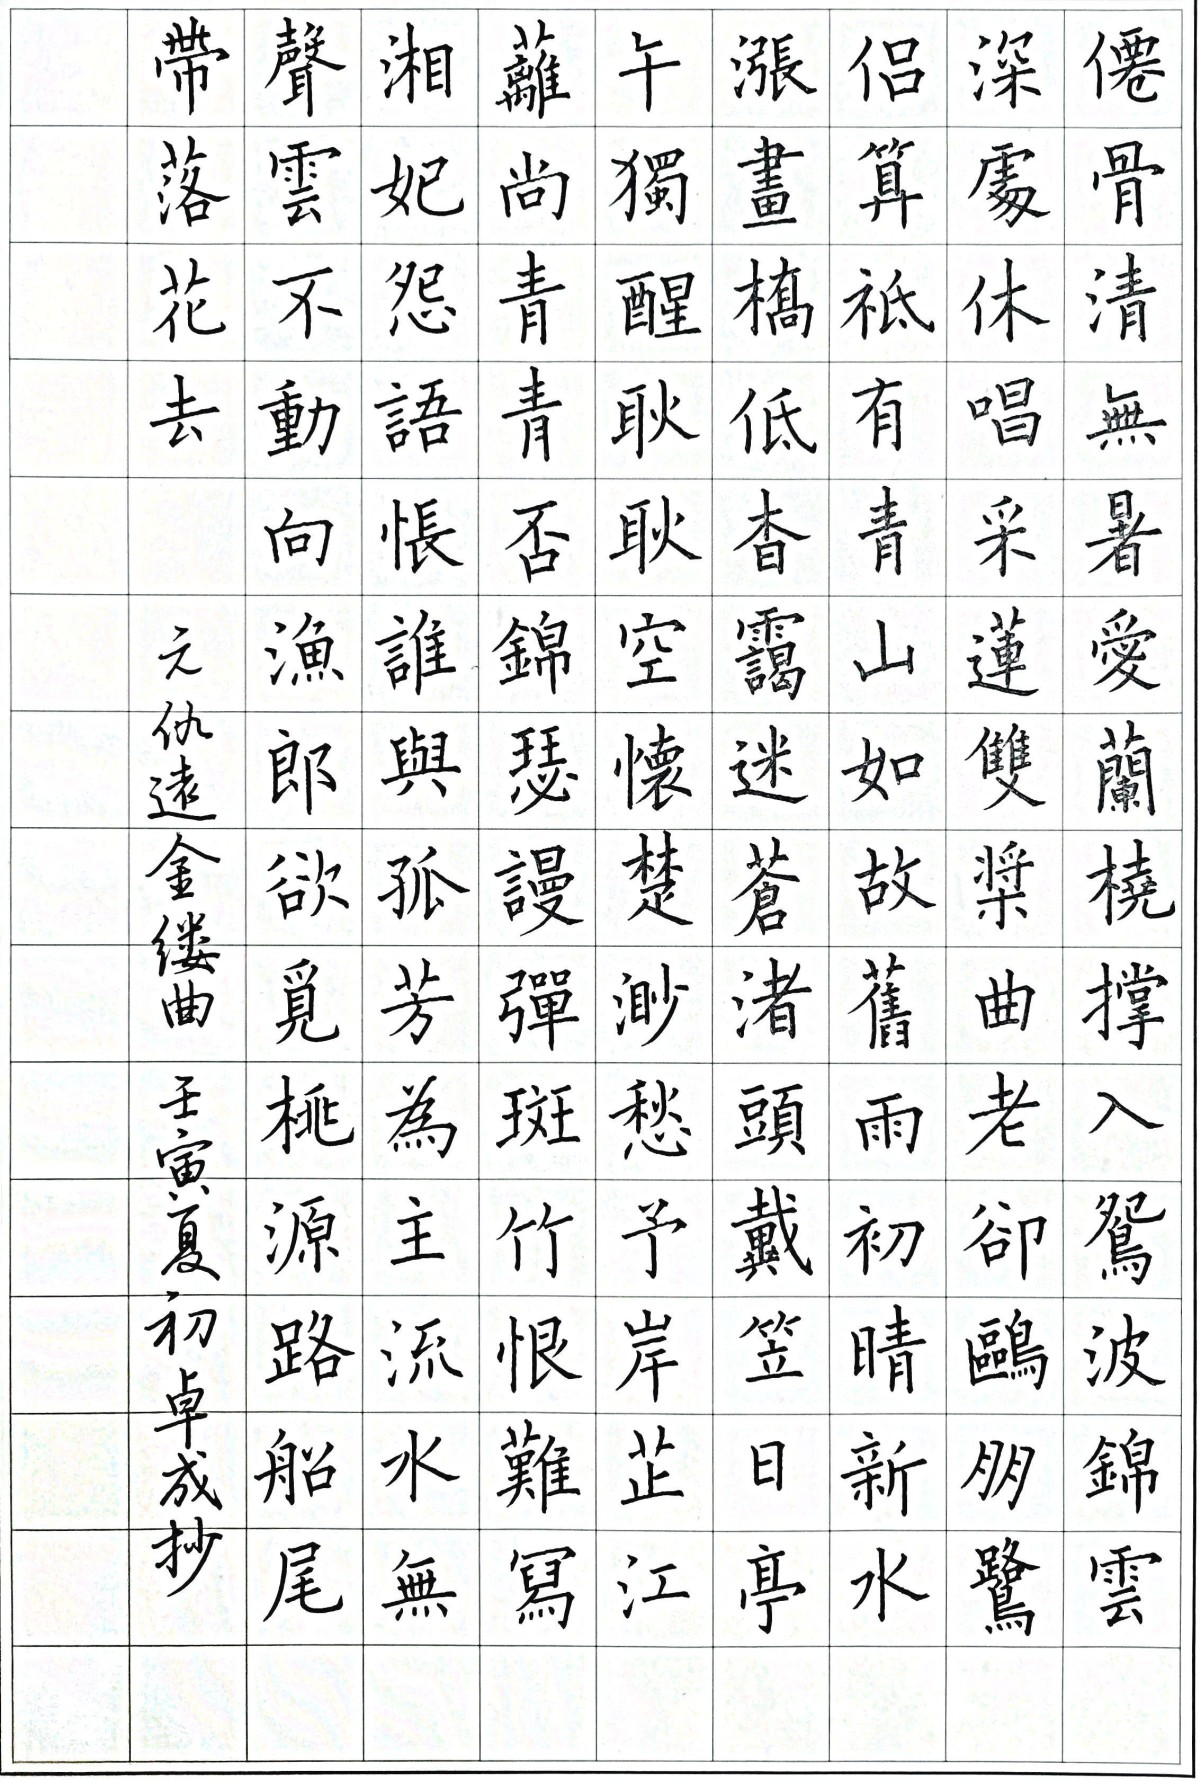 僊骨清無暑愛蘭橈撐入鴛波錦雲
深處休唱采蓮雙槳曲老卻鷗朋鷺
侶算祇有青山如故舊雨初晴新水
漲畫橋低杳靄迷蒼渚頭戴笠日亭
午獨醒耿耿空懷楚渺愁予岸芷江
蘺尚青青否錦瑟謾彈斑竹恨難寫
湘妃怨語悵誰與孤芳為主流水無
聲雲不動向漁郎欲覓桃源路船尾
帶落花去
元仇遠金缕曲 壬寅夏初卓成抄